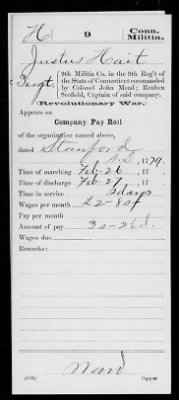 H 9 Conn. Militia.
Justus Hait
Sergt, 9th Militia Co. in the 9th Reg't of
the State of Connecticut commanded
by Colonel John Mead; Reuben
Scofield, Captain of said company.
Revolutionary War.
Appears on
Company Pay Roll
of the organization named above,
dated Stanford
A.D., 1779.
Time of marching Feb. 26, 17
Time of discharge Feb. 27, 17
Time in service 2 days
Wages per month £2-8s
Pay per month
Amount of pay 3s-2½d.
Wages due
Remarks:
Ward
Copyist.